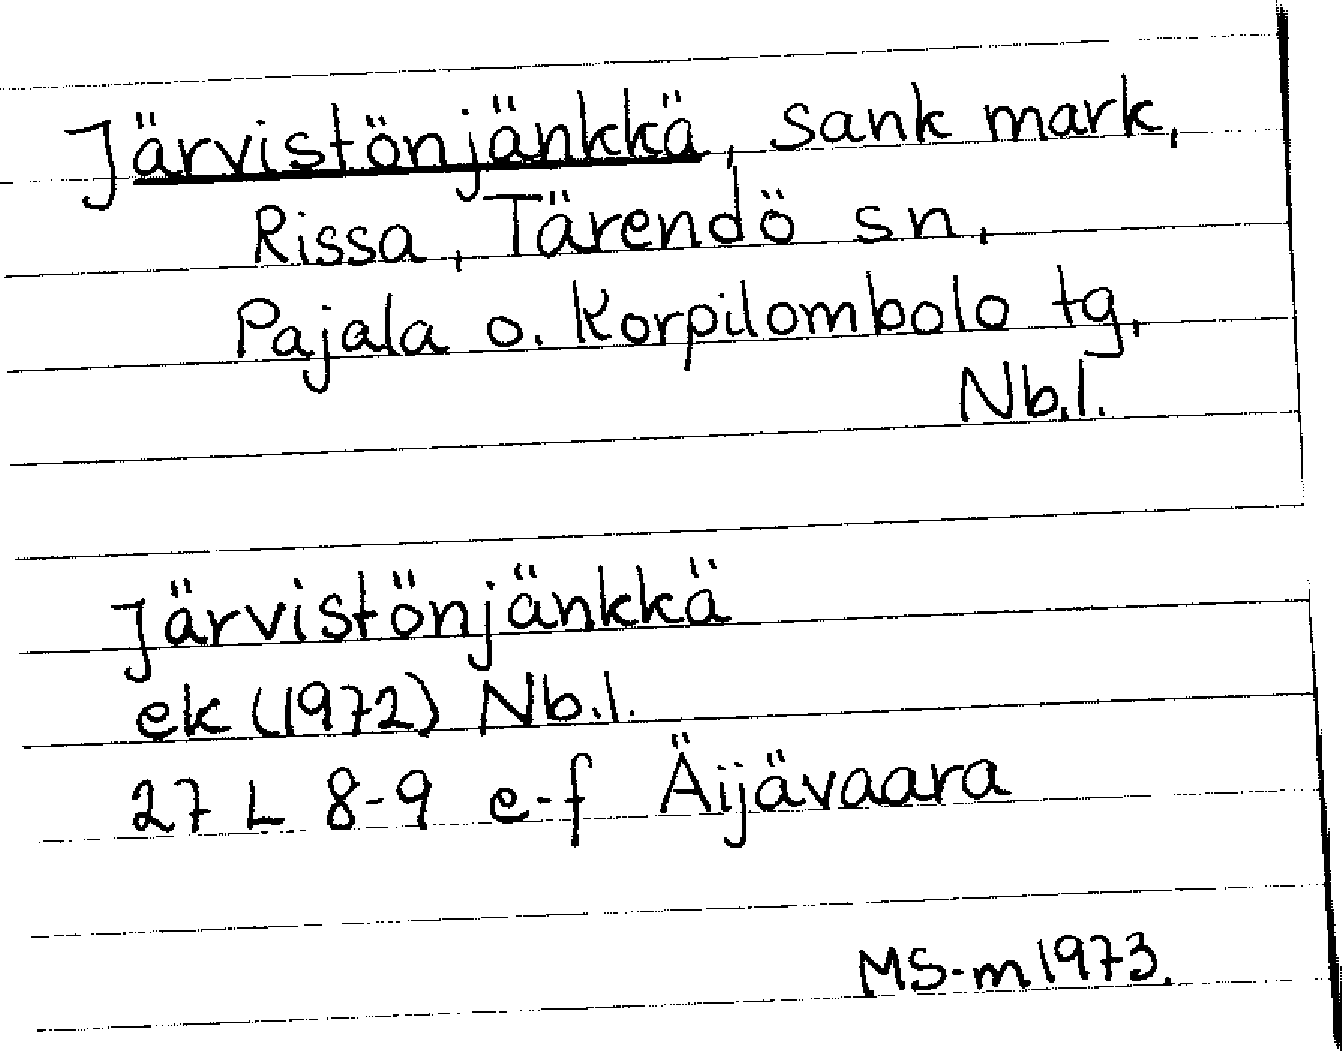 Järvistönjänkkä, sank mark,
Rissa, Tärendö sn,
Pajala o. Korpilombolo tg,
Nb.l.
Järvistönjänkkä
ek (1972) Nb.l.
27 L 8-9 e-f Äijävaara
MS-m 1973.